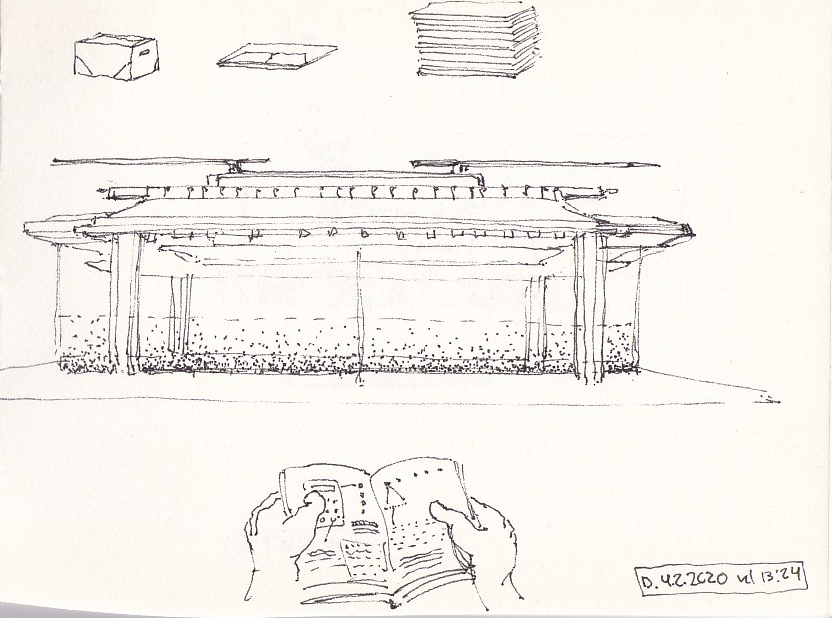 D. 4.2.2020 kl 13:24